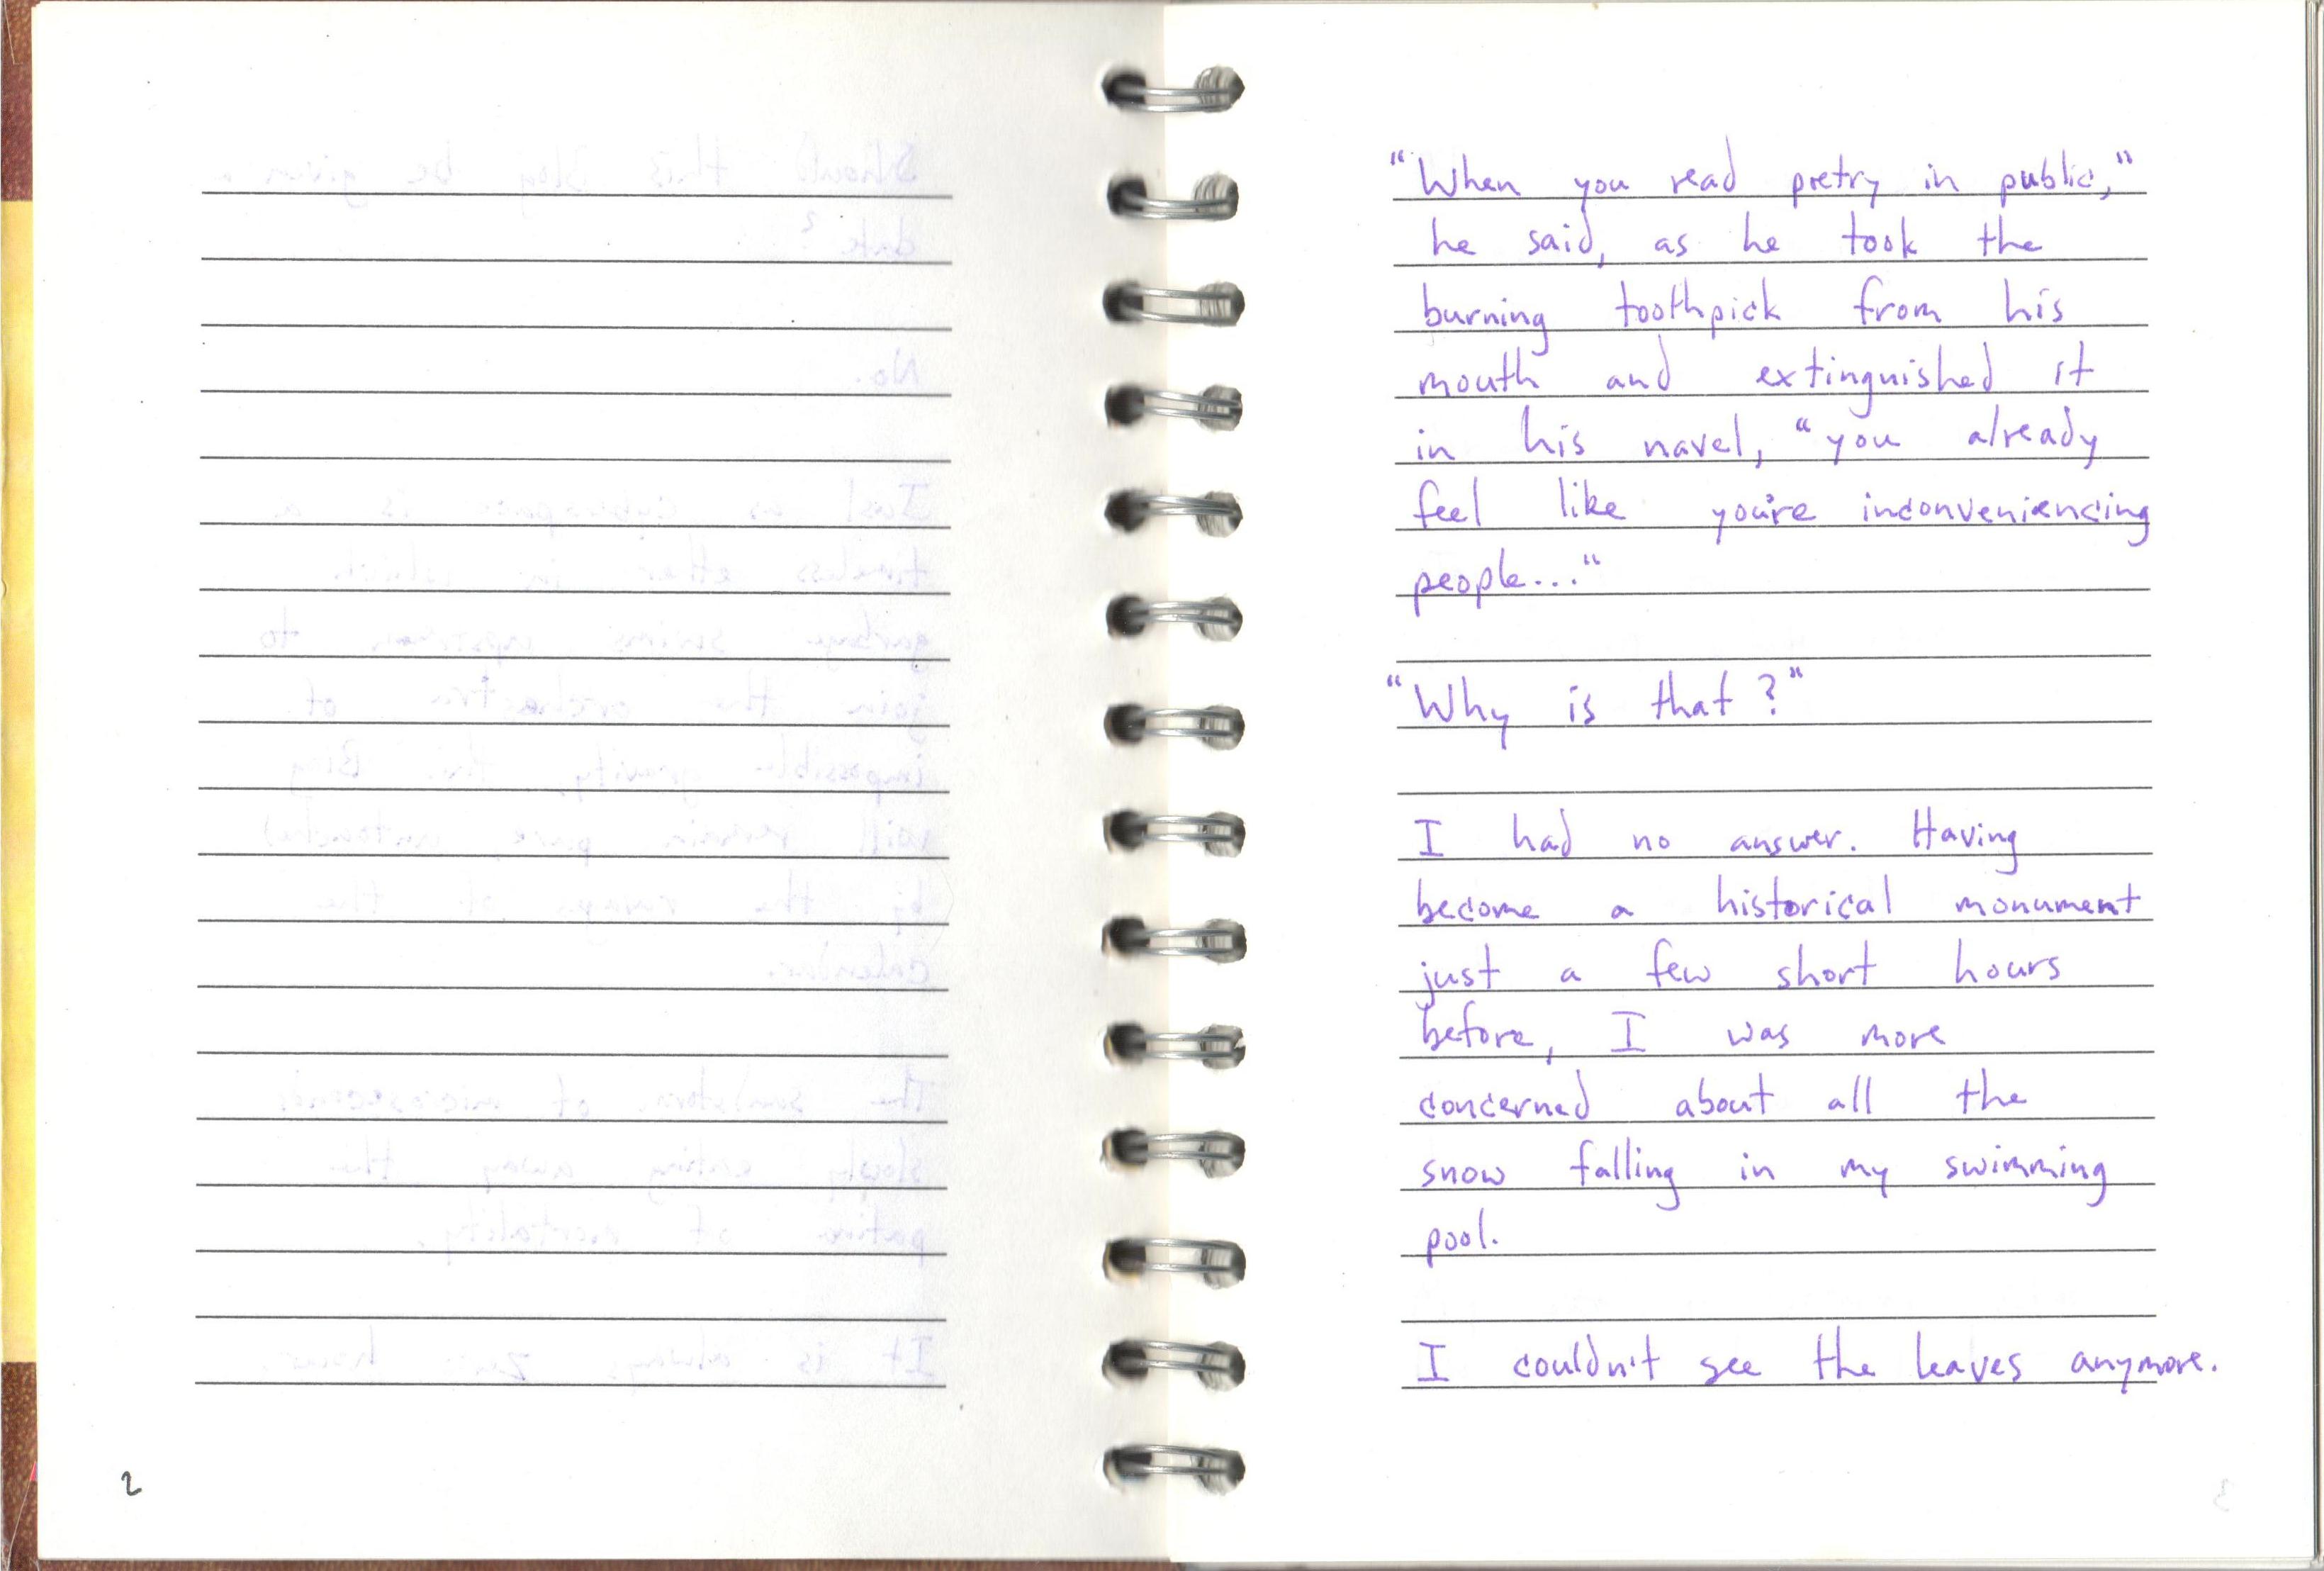 2
"When you read poetry in public,"
he said, as he took the
burning toothpick from his
mouth and extinguished it
in his navel, "you already
feel like you're inconveniencing
people..."
"Why is that?"
I had no answer. Having
become a historical monument
just a few short hours
before, I was more
concerned about all the
snow falling in my swimming
pool.
I couldn't see the leaves anymore.